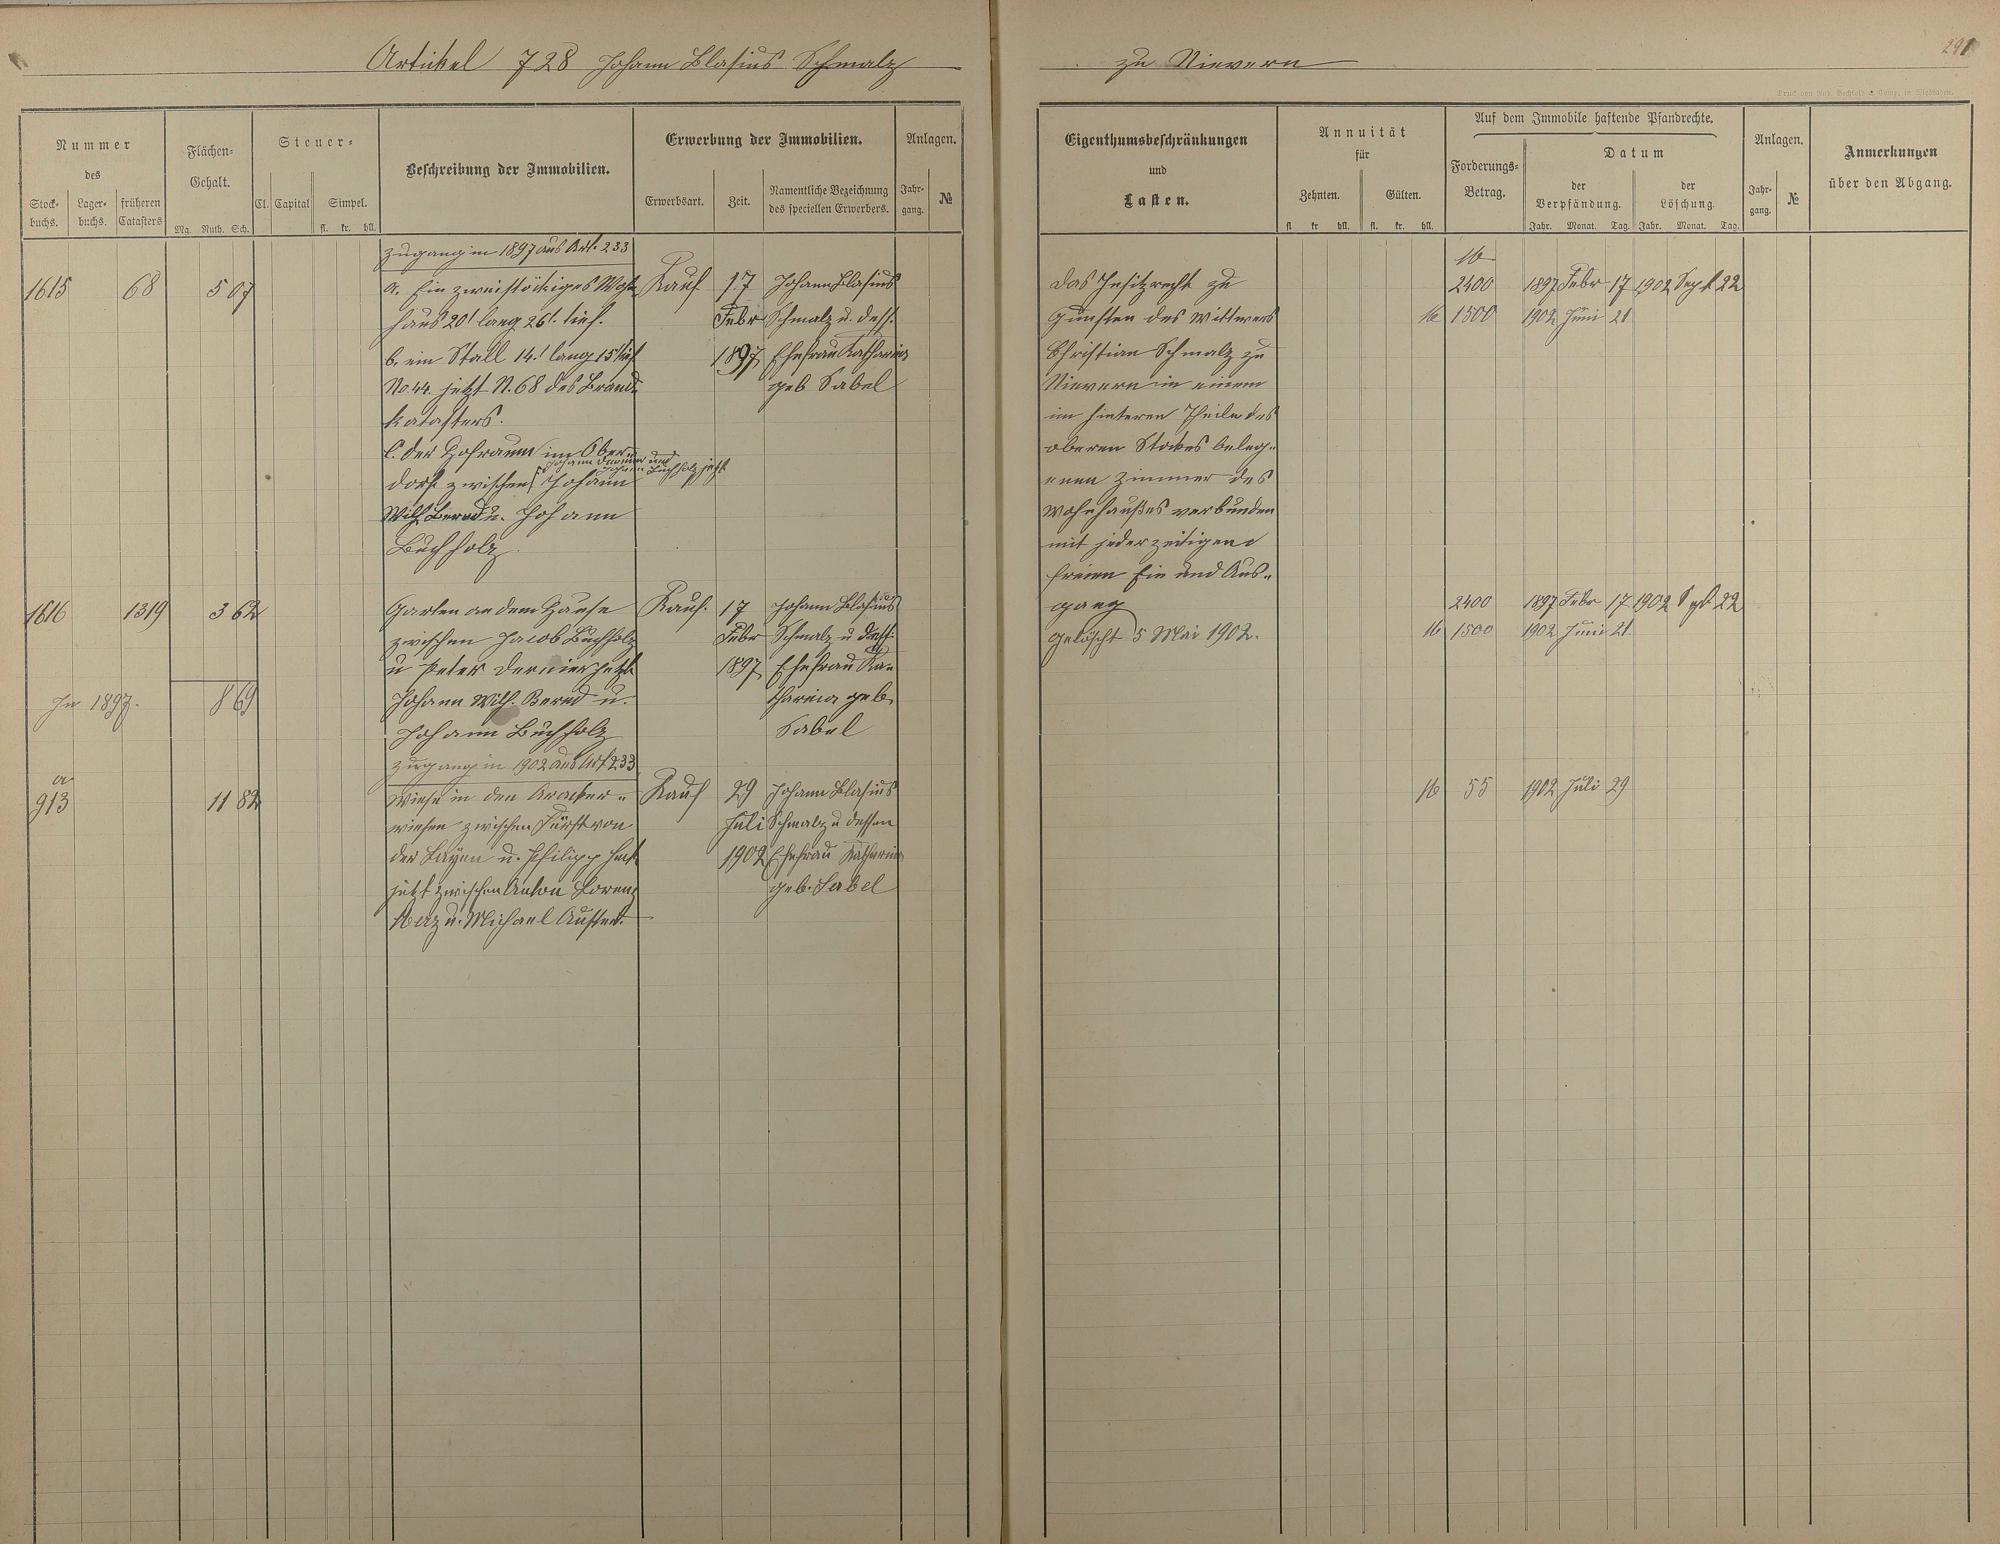 Artikel 728 Johann Blasius Schmalz
zu Nievern
291
Druck von Rud. Bechtold & Comp. in Wiesbaden.
Nummer
des
Stock-
buchs.
Lager-
buchs.
früheren
Catasters
Flächen-
Gehalt.
Mg. Ruth. Sch.
Steuer-
Cl. Capital
Simpel.
fl. kr. hll.
Beschreibung der Immobilien.
Erwerbung der Immobilien.
Erwerbsart.
Zeit.
Namentliche Bezeichnung
des speciellen Erwerbers.
Anlagen.
Jahr-
gang.
№
Eigenthumsbeschränkungen
und
Lasten.
Annuität
für
Zehnten.
Gülten.
fl kr hll. fl. kr. hll.
Auf dem Immobile haftende Pfandrechte.
Forderungs-
Betrag.
Datum
der
Verpfändung.
der
Löschung.
Jahr. Monat. Tag. Jahr. Monat. Tag.
Anlagen.
Jahr-
gang.
№
Anmerkungen
über den Abgang.
Zugang in 1897 aus Art. 233
1615 68 5 07
a. Ein zweistöckiges Wohn-
haus 20' lang 26' tief.
b. ein Stall 14' lang 15' tief
No. 44 jetzt N. 68 des Brand-
katasters.
c. der Hofraum im Ober-
dorf zwischen Johann
Johann Buchholz jetzt
Wilh. Bernd u. Johann
Buchholz.
Kauf
17
Febr
1897
Johann Blasius
Schmalz u. dess.
Ehefrau Katharina
geb Sabel
Das Insitzrecht zu
Gunsten des Wittwers
Christian Schmalz zu
Nievern in einem
im hinteren Theile des
oberen Stockes beleg-
enen Zimmer des
Wohnhauses verbunden
mit jederzeitigem
freien Ein und Aus-
gang
gelöscht 5 Mai 1902.
M
2400 1897 Febr 17 1902 Sept 22
M 1500 1902 Juni 21
1616 1319 3 62
Garten an dem Hause
zwischen Jacob Buchholz
u Peter jetzt
Johann Wilh. Bernd u.
Johann Buchholz
Kauf.
17
Febr
1897
Johann Blasius
Schmalz u dess.
Ehefrau Ka-
tharina geb.
Sabel
2400 1897 Febr 17 1902 Sept 22
M 1500 1902 Juni 21
In 1897. 8 69
Zugang in 1902 aus Art 233
a
913 11 82
Wiese in den
wiesen zwischen Fürst von
der Layen u. Philipp
jetzt zwischen Anton Lorenz
u. Michael
Kauf
29
Juli
1902
Johann Blasius
Schmalz u dessen
Ehefrau Katharina
geb. Sabel
M 55 1902 Juli 29